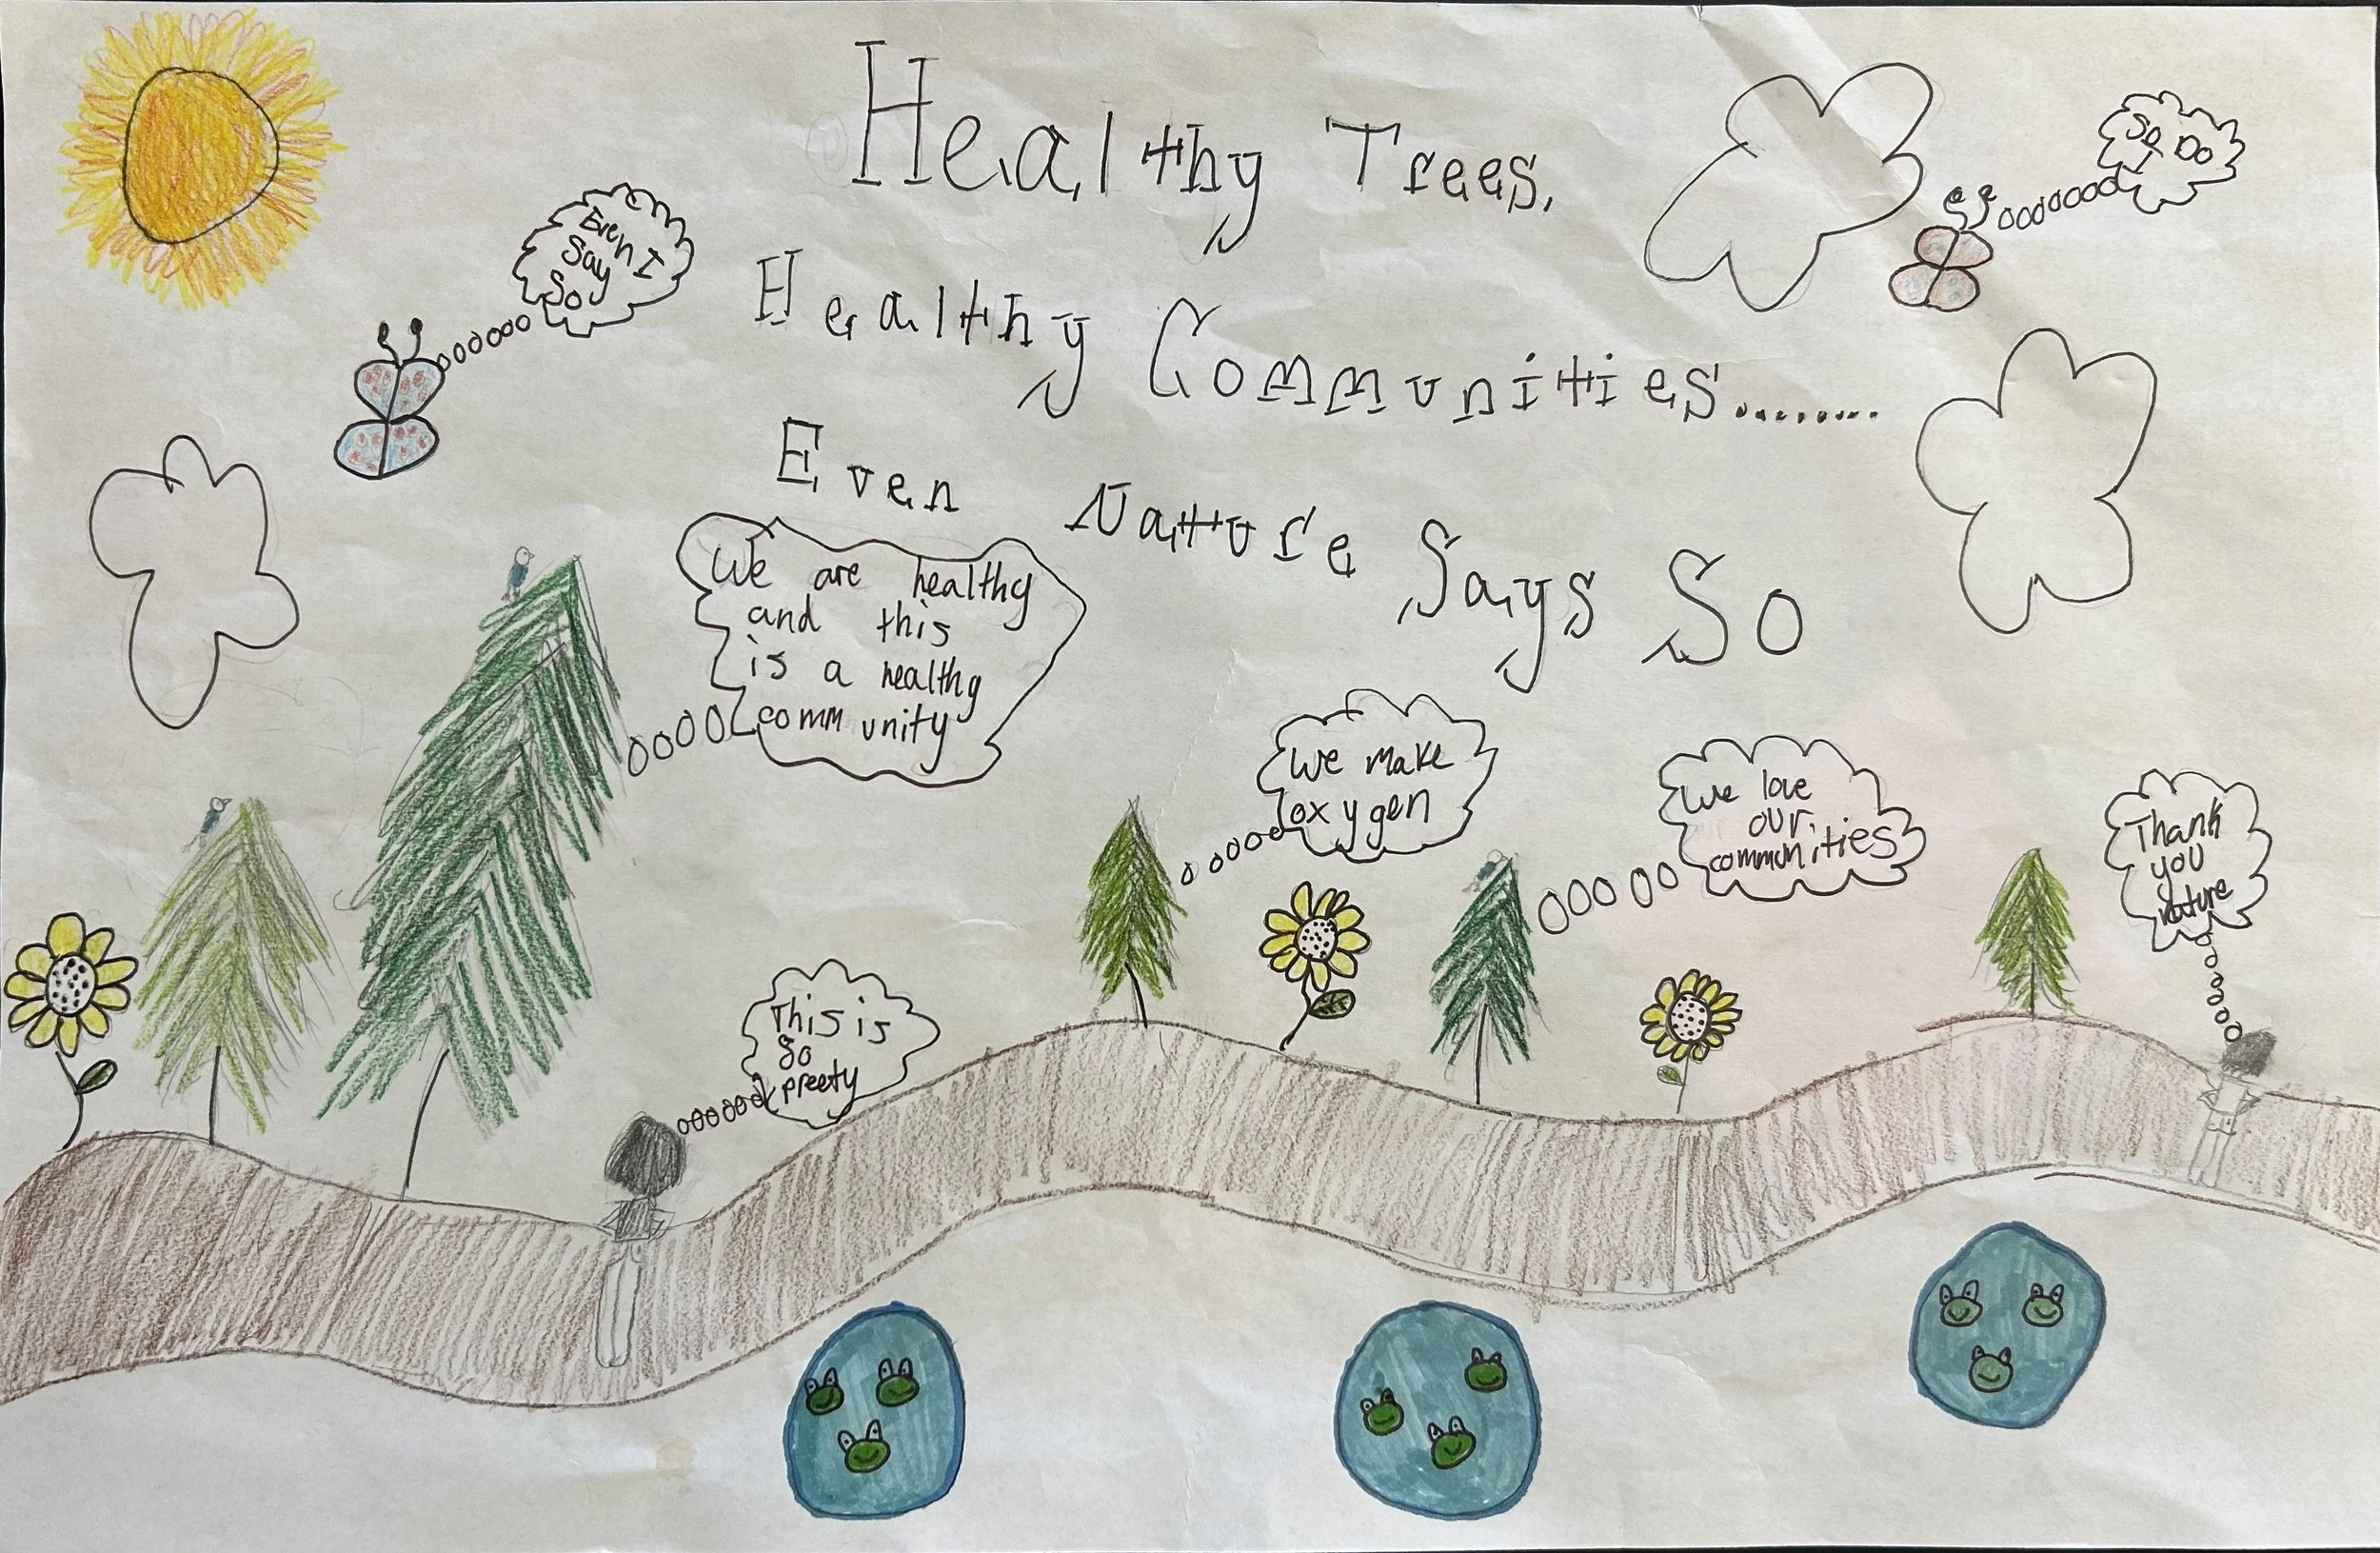 Healthy Trees,
Healthy Communities.........
Even Nature Says So
Even I
Say
So
So Do
I
We are healthy
and this
is a healthy
community
We make
oxygen
We love
our
communities
Thank
you
nature
This is
So
preety